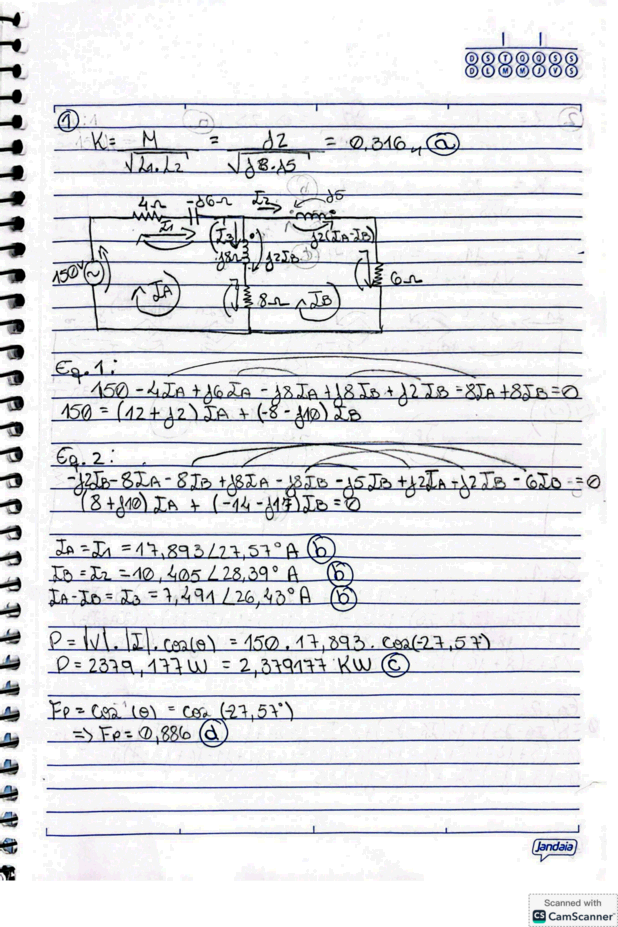 D S T Q Q S S
D L M M J V S
1
K = M / √L1.L2 = j2 / √j8.j5 = 0,316 a
4Ω -j6Ω I2 j5
I1 I3 j2(IA-IB)
j8Ω j2IB
150V IA 8Ω IB 6Ω
Eq. 1:
150 - 4IA + j6IA - j8IA + j8IB + j2IB = 8IA + 8IB = 0
150 = (12 + j2) IA + (-8 - j10) IB
Eq. 2:
-j2IB - 8IA - 8IB + j8IA - j8IB - j5IB + j2IA - j2IB - 6IB = 0
(8 + j10) IA + (-14 - j17) IB = 0
IA = I1 = 17,893∠27,57° A b
IB = I2 = 10,405∠28,39° A b
IA-IB = I3 = 7,491∠26,43° A b
P = |V|.|I|.cos(θ) = 150.17,893.cos(-27,57)
P = 2379,177W = 2,379177 KW c
Fp = cos (θ) = cos (-27,57°)
=> Fp = 0,886 d
Jandaia
Scanned with
CS CamScanner